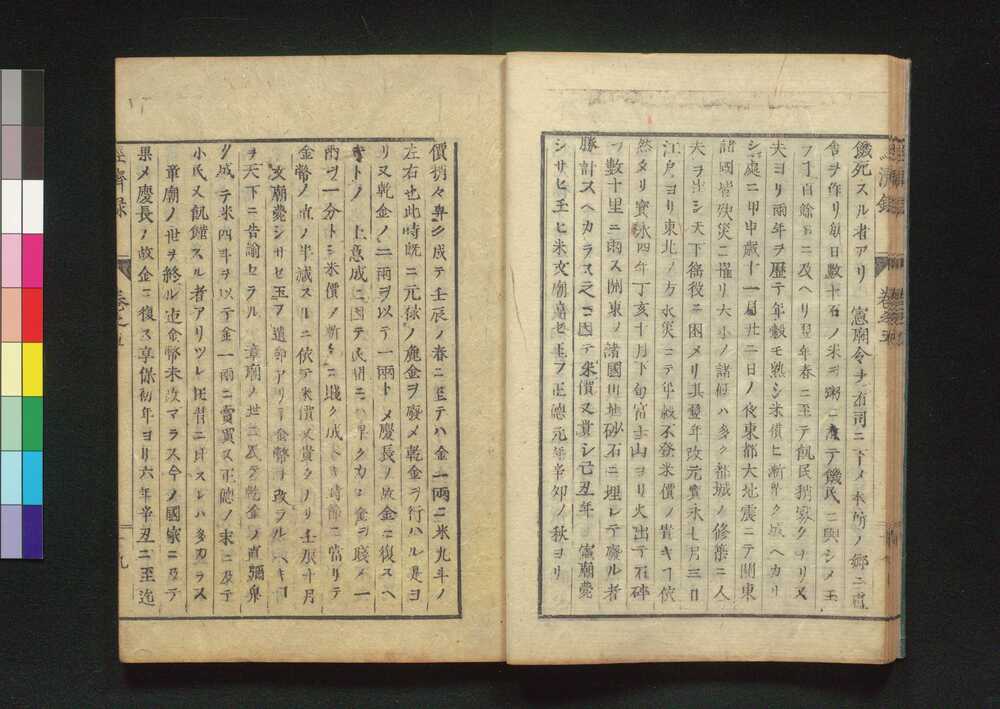 饑死スル者アリ 憲廟令ヲ有司ニ下メ本所ノ郷ニ
舎ヲ作リ毎日數十石ノ米ヲ粥ニ煮テ饑民ニ與シメ玉
フ丁百餘日ニ及ヘリ翌年春ニ至テ飢民稍寡クナリヌ
夫ヨリ兩年ヲ歷テ年穀モ熟シ米價ヒ漸ヤク減ヘカリ
シ處ニ甲申歳十一月廿二日ノ夜東都大地震ニテ關東
諸國皆殃災ニ罹リ大小ノ諸侯ハ多ク都城ノ修葺ニ人
夫ヲ出シ天下徭役ニ困メリ其翌年改元寳永七月三日
江戸ヨリ東北ノ方水災ニテ年穀不登米價ノ貴キ丁依
然タリ寳永四年丁亥十月下旬富士山ヨリ火出テ石砕
フ數十里ニ雨ス關東ノ諸國田地砂石ニ埋レテ廢ル者
勝計スヘカラス之ニ因テ米價又貴シ己丑年 憲廟薨
シサセ玉ヒ米文廟嘉セ玉フ正德元年辛卯ノ秋ヨリ
價稍々卑ク成テ壬辰ノ春ニ至テハ金一兩ニ米九斗ノ
左右也此時既ニ元禄ノ麁金ヲ廢メ乾金ヲ行ハル是ヨ
リ又乾金ノ二兩ヲ以テ一兩トメ慶長ノ故金ニ復スヘ
キトノ 上意成ニ因テ民間ニハ早クカノ金ヲ賤メ一
兩ヲ一分トシ米價ノ漸々ニ賤ク成ヘキ時節ニ當リテ
金幣ノ直ノ半減スルニ依テ米價又貴クナリ壬辰十月
文廟薨シサセ玉フ遺命アリテ金幣ヲ改ラルヘキ
ヲ天下ニ告諭セラル 章廟ノ世ニ及テ乾金ノ直彌卑
ク成テ米四斗ヲ以テ金一兩ニ賣買ス正德ノ末ニ及テ
小民又飢饉スル者アリツレ𪜈昔ニ比スレハ多カラス
章廟ノ世ヲ終ル迄金幣未改マラス今ノ國家ニ及テ
果メ慶長ノ故金ニ復ス享保初年ヨリ六年辛丑ニ至迄
經濟録
卷之五
十九